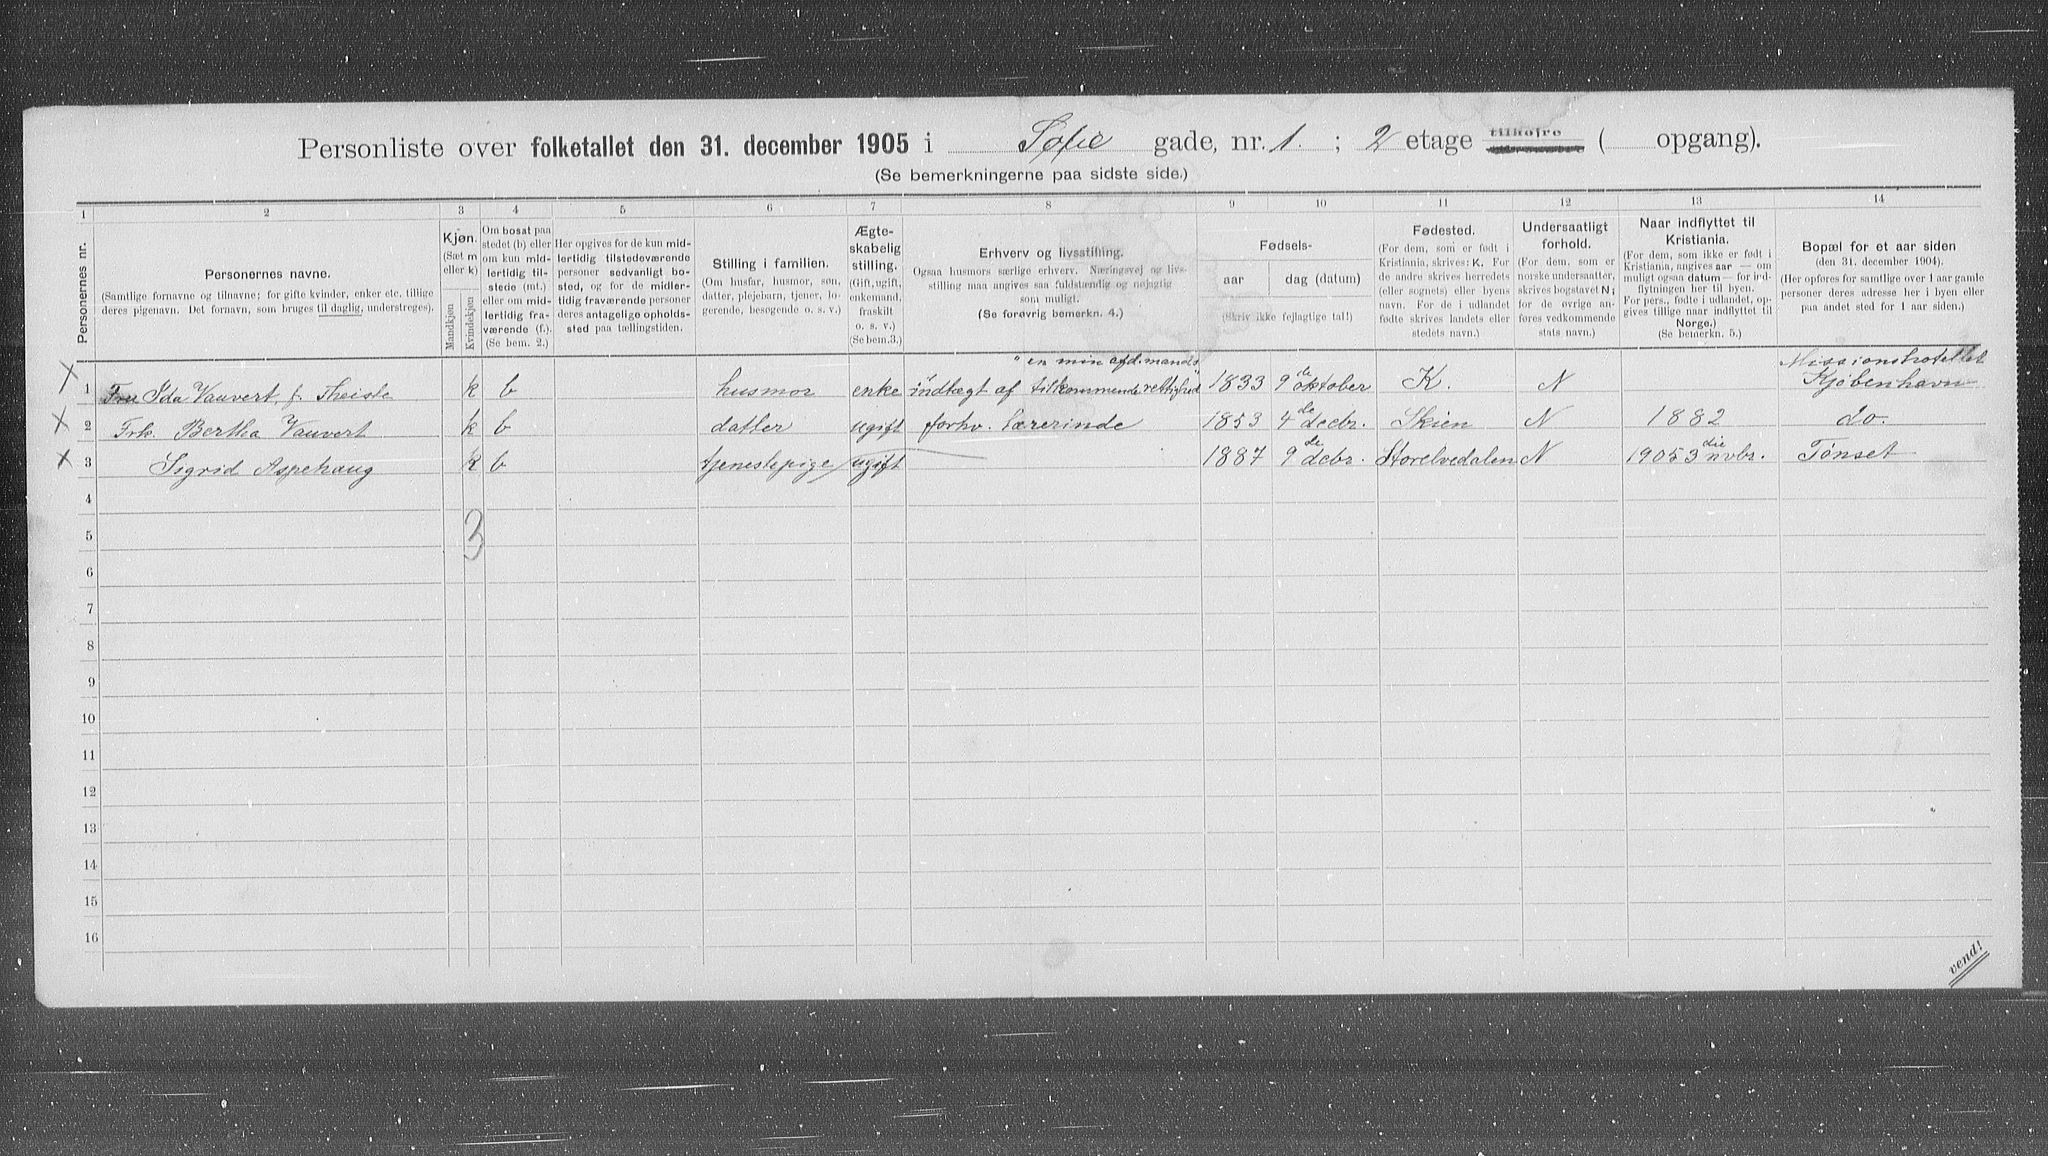 Personliste over folketallet den 31. december 1905 i Sofie gade, nr. 1. ; 2 etage tilhøjre ( opgang).
(Se bemerkningerne paa sidste side.)
1 2 3 4 5 6 7 8 9 10 11 12 13 14
Personernes nr.
Personernes navne.
(Samtlige fornavne og tilnavne; for gifte kvinder, enker etc. tillige
deres pigenavn. Det fornavn, som bruges til daglig, understreges).
Kjøn.
(Sæt m
eller k)
Mandkjøn
Kvindekjøn
Om bosat paa
stedet (b) eller
om kun mid-
lertidig til-
stede (mt.)
eller om mid-
lertidig fra-
værende (f.).
(Se bem. 2.)
Her opgives for de kun mid-
lertidig tilstedeværende
personer sedvanlig bo-
sted, og for de midler-
tidig fraværende personer
deres antagelige opholds-
sted paa tællingstiden.
Stilling i familien.
(Om husfar, husmor, søn,
datter, plejebarn, tjener, lo-
gerende, besøgende o. s. v.)
Ægte-
skabelig
stilling.
(Gift, ugift,
enkemand,
fraskilt
o. s. v.)
(Se bem. 3.)
Erhverv og livsstilling.
Ogsaa husmors særlige erhverv. Næringsvej og livs-
stilling maa angives saa fuldstændig og nøjagtig
som muligt.
(Se forøvrig bemerkn. 4.)
Fødsels-
aar
dag (datum)
(Skriv ikke fejlagtige tal!)
Fødested.
(For dem, som er født i
Kristiania, skrives: K. For
de andre skrives herredets
(eller sognets) eller byens
navn. For de i udlandet
fødte skrives landets eller
stedets navn.)
Undersaatligt
forhold.
(For dem, som er
norske undersaatter,
skrives bogstavet N;
for de øvrige an-
føres vedkommende
stats navn.)
Naar indflyttet til
Kristiania.
(For dem, som ikke er født i
Kristiania, angives aar — om
muligt ogsaa datum — for ind-
flytningen her til byen.
For pers., fødte i udlandet, op-
gives tillige naar indflyttet til
Norge.)
(Se bemerkn. 5.)
Bopæl for et aar siden
(den 31. december 1904).
(Her opføres for samtlige over 1 aar gamle
personer deres adresse her i byen eller
paa andet sted for 1 aar siden.)
"en min afd. mands Missionshotellet
X 1 Fru Ida Vauvert, f. Theiste k b husmor enke indtægt af tilkommende rettighed" 1833 9de oktober K. N Kjøbenhavn
X 2 Frk. Bertha Vauvert k b datter ugift forhv. Lærerinde 1853 4de decbr. Skien N 1882 do.
X 3 Sigrid Aspehaug k b tjenestepige ugift 1887 9de debr. Storelvedalen N 1905 3die nvbr. Tønset
4
3
5
6
7
8
9
10
11
12
13
14
15
16
vend!